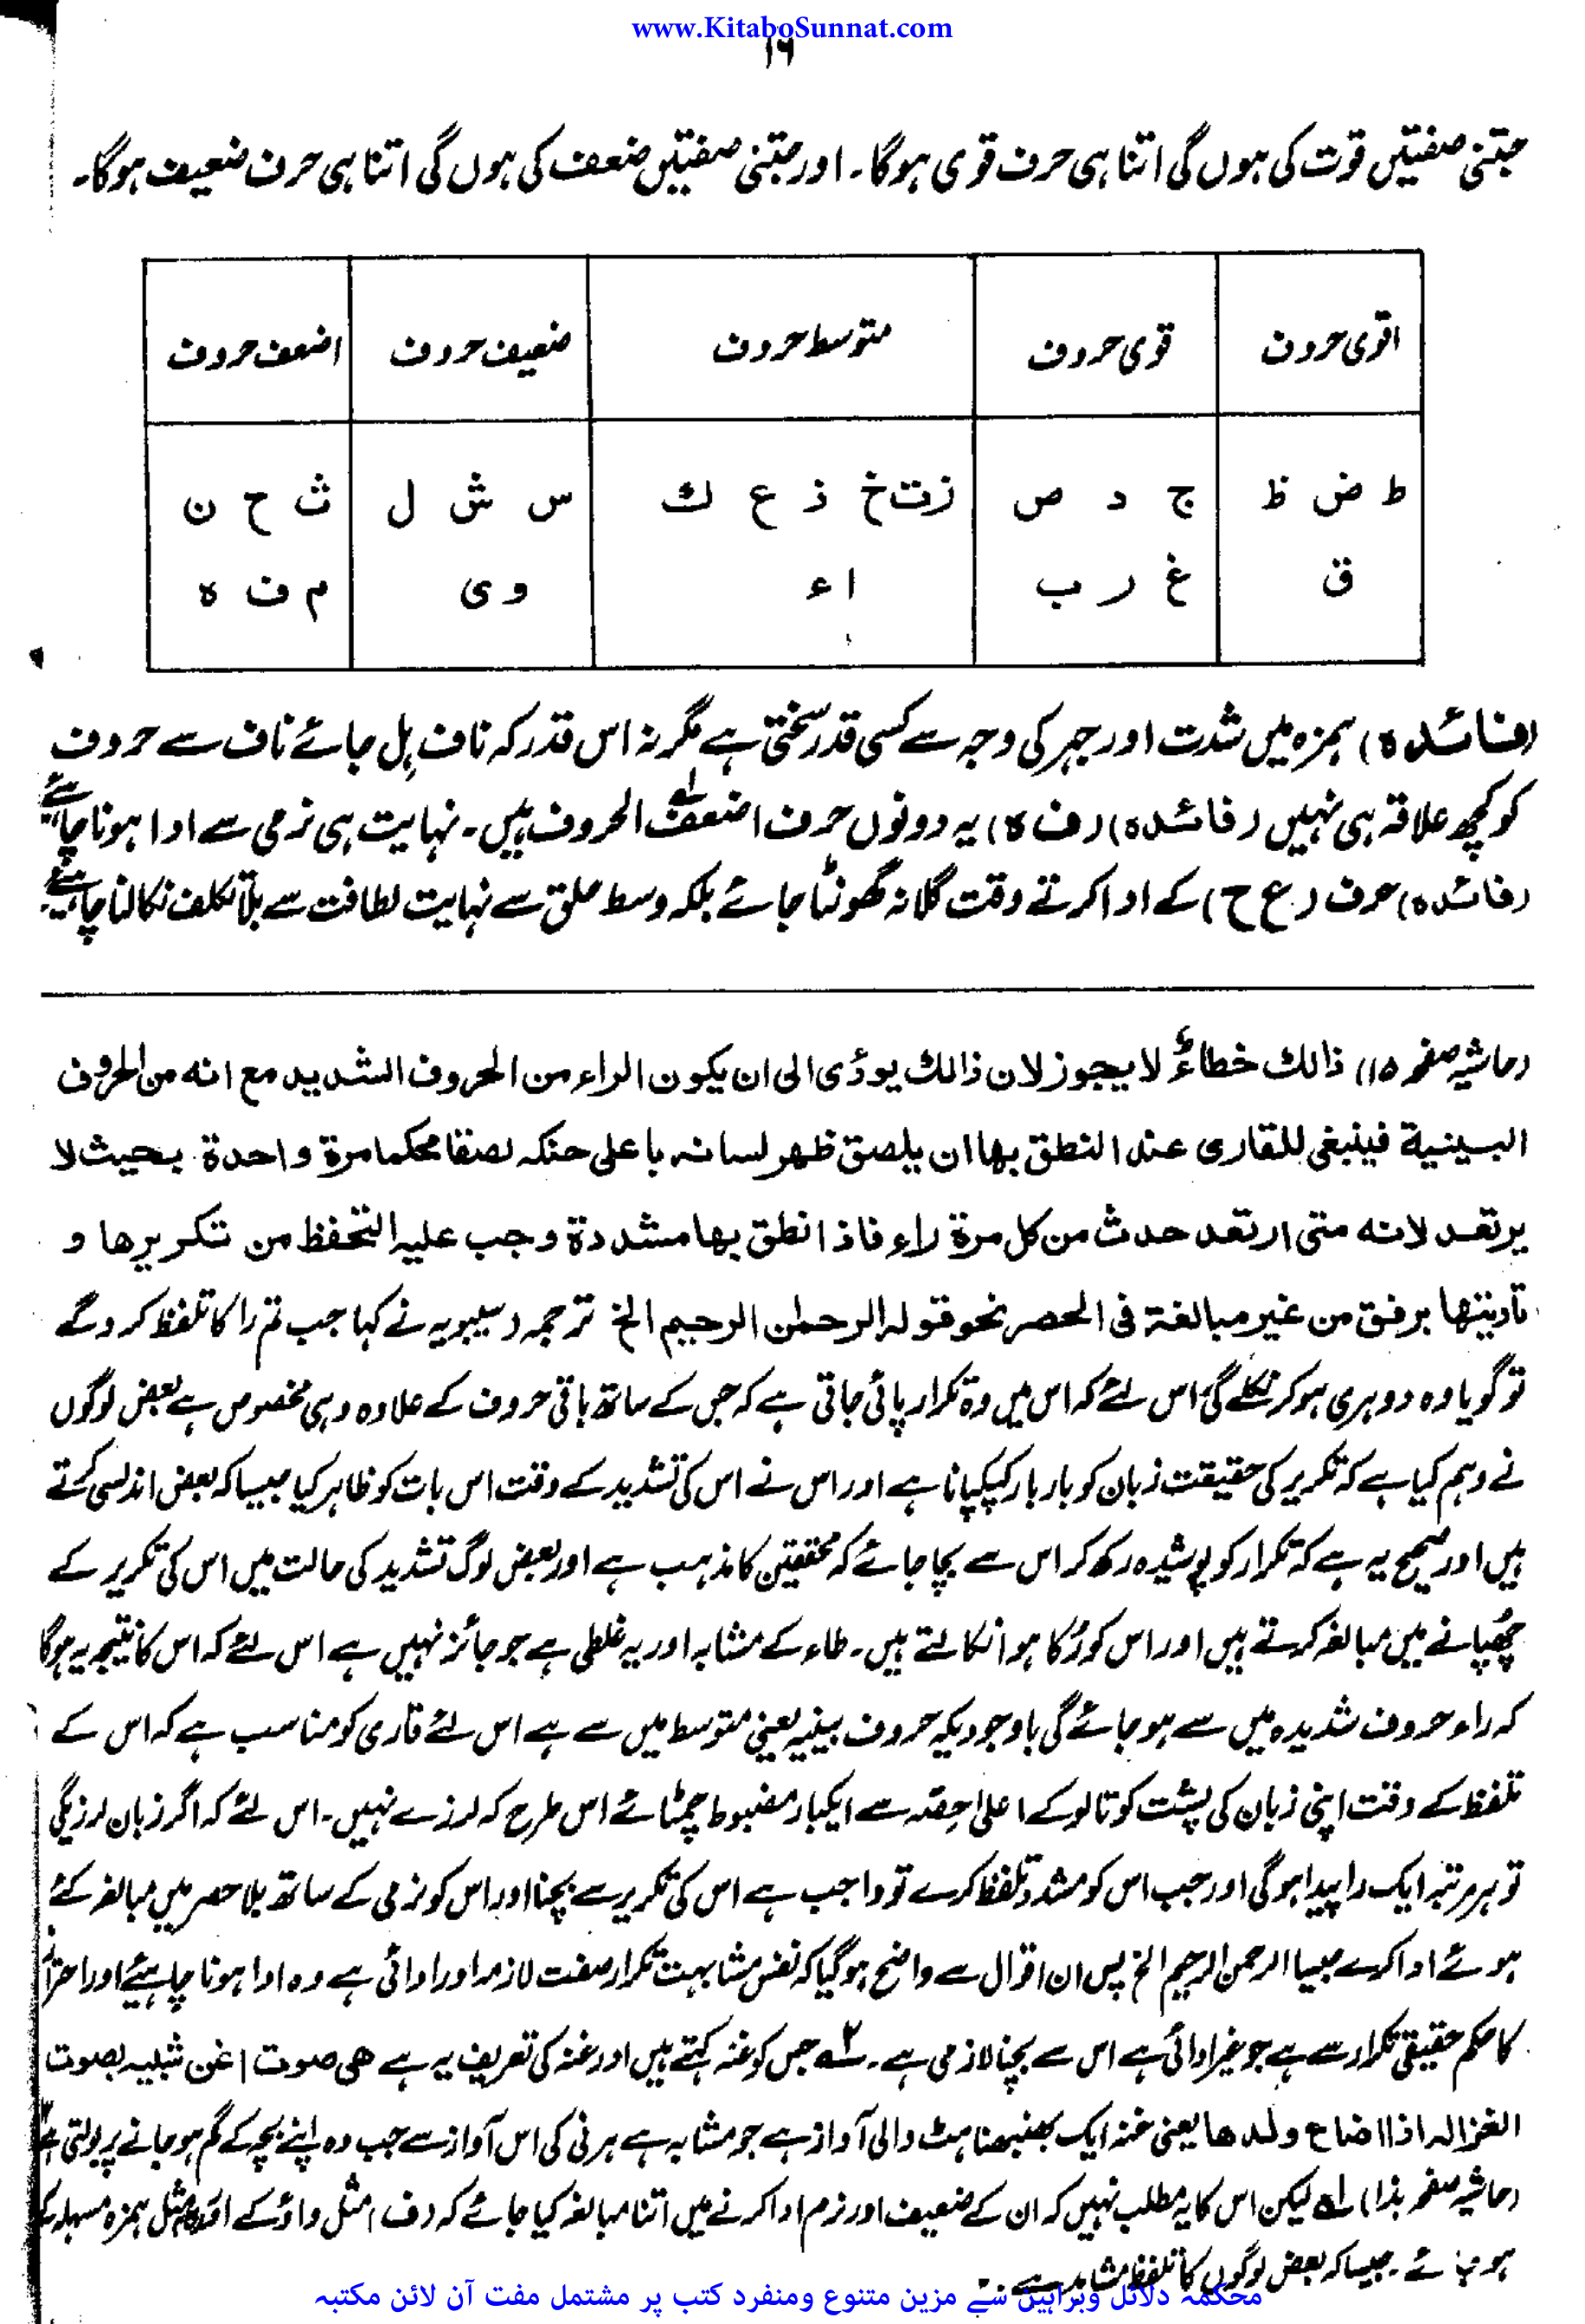 www.KitaboSunnat.com
۱۶
جتنی صفتیں قوت کی ہوں گی اتنا ہی حرف قوی ہوگا۔ اور جتنی صفتیں ضعف کی ہوں گی اتنا ہی حرف ضعیف ہوگا۔
اقوی حروف قوی حروف متوسط حروف ضعیف حروف اضعف حروف
ط ض ظ ج د ص ز ت خ ذ ع ك س ش ل ث ح ن
ق غ ر ب ا ء و ی م ف ہ
(فائدہ) ہمزہ میں شدت اور جہر کی وجہ سے کسی قدر سختی ہے مگر نہ اس قدر کہ ناف ہِل جائے ناف سے حروف
کو کچھ علاقہ ہی نہیں (فائدہ) (ف ہ) یہ دونوں حرف اضعف الحروف ہیں۔ نہایت ہی نرمی سے ادا ہونا چاہئے
(فائدہ) حرف (ع ح) کے ادا کرتے وقت گلا نہ گھونٹا جائے بلکہ وسط حلق سے نہایت لطافت سے بلا تکلف نکالنا چاہیئے۔
(حاشیہ صفحہ ۱۵) ذالك خطاءٌ لا يجوز لان ذالك يودٔى الى ان يكون الراء من الحروف الشديد مع انه من الحروف
البينية فينبغى للقارى عند النطق بها ان يلصق ظهر لسانه باعلى حنكه لصقا محكما مرة واحدة بحيث لا
يرتعد لانه متى ارتعد حدث من كل مرة راء فاذا نطق بها مشددة وجب عليه التحفظ من تكريرها و
تاديتها برفق من غير مبالغة فى الحصر نحو قوله الرحمٰن الرحيم الخ ترجمہ (سیبویہ نے کہا جب تم را کا تلفظ کرو گے
تو گویا وہ دوہری ہو کر نکلے گی اس لئے کہ اس میں وہ تکرار پائی جاتی ہے کہ جس کے ساتھ باقی حروف کے علاوہ وہی مخصوص ہے بعض لوگوں
نے وہم کیا ہے کہ تکریر کی حقیقت زبان کو بار بار کپکپانا ہے اور اس نے اس کی تشدید کے وقت اس بات کو ظاہر کیا جیسا کہ بعض اندلسی کرتے
ہیں اور صحیح یہ ہے کہ تکرار کو پوشیدہ رکھ کر اس سے بچا جائے کہ محققین کا مذہب ہے اور بعض لوگ تشدید کی حالت میں اس کی تکریر کے
چُھپانے میں مبالغہ کرتے ہیں اور اس کو رُکا ہوا نکالتے ہیں۔ طاء کے مشابہ اور یہ غلطی ہے جو جائز نہیں ہے اس لئے کہ اس کا نتیجہ یہ ہوگا
کہ راء حروف شدیدہ میں سے ہو جائے گی باوجودیکہ حروف بینیہ یعنی متوسط میں سے ہے اس لئے قاری کو مناسب ہے کہ اس کے
تلفظ کے وقت اپنی زبان کی پشت کو تالو کے اعلیٰ حِصّہ سے ایکبار مضبوط چمٹائے اس طرح کہ لرزے نہیں۔ اس لئے کہ اگر زبان لرزیگی
تو ہر مرتبہ ایک را پیدا ہوگی اور جب اس کو مشدد تلفظ کرے تو واجب ہے اس کی تکریر سے بچنا اور اس کو نرمی کے ساتھ بلا حصر میں مبالغہ کئے
ہوئے ادا کرے جیسا الرحمن الرحیم الخ پس ان اقوال سے واضح ہوگیا کہ نفس مشابہت تکرار صفت لازمہ اور ادائی ہے وہ ادا ہونا چاہیئے اور احتراز
کا حکم حقیقی تکرار سے ہے جو غیر ادائی ہے اس سے بچنا لازمی ہے۔ ۲ے جس کو غنہ کہتے ہیں اور غنہ کی تعریف یہ ہے هى صوت اغن شبيه بصوت
الغزاله اذا اضاع ولدها یعنی غنہ ایک بھنبھناہٹ والی آواز ہے جو مشابہ ہے ہرنی کی اس آواز سے جب وہ اپنے بچہ کے گم ہوجانے پر بولتی ہے
(حاشیہ صفحہ ہذا) ۱ے لیکن اس کا یہ مطلب نہیں کہ ان کے ضعیف اور نرم ادا کرنے میں اتنا مبالغہ کیا جائے کہ (ف) مثل واؤ کے اور مثل ہمزہ مسہلہ کے
ہو جائے۔ جیسا کہ بعض لوگوں کا تلفظ مشاہد ہے۔
محکمہ دلائل وبراہین سے مزین متنوع ومنفرد کتب پر مشتمل مفت آن لائن مکتبہ